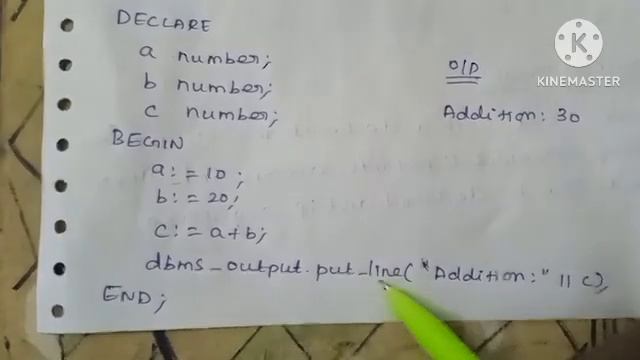 DECLARE
a number;
b number;
c number;
BEGIN
a:= 10;
b:= 20;
c:= a+b;
dbms_output.put_line("Addition:" || c);
END;
O/P
Addition: 30
K
KINEMASTER